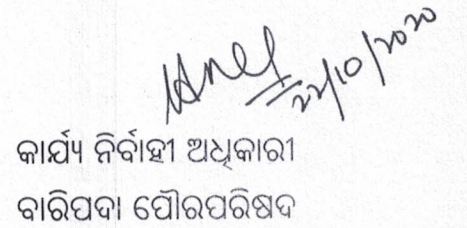 22/10/2020
କାର୍ଯ୍ୟ ନିର୍ବାହୀ ଅଧିକାରୀ
ବାରିପଦା ପୌରପରିଷଦ